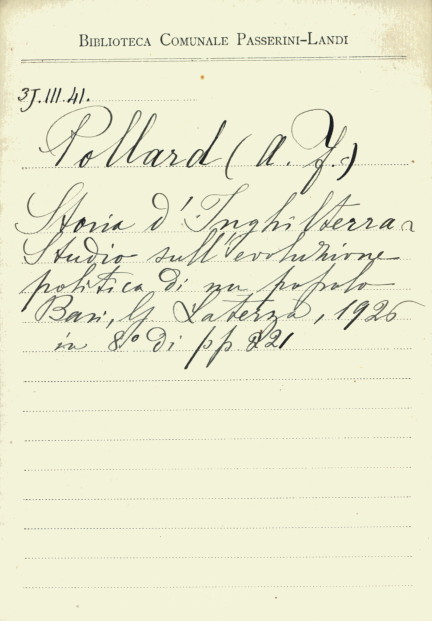 BIBLIOTECA COMUNALE PASSERINI-LANDI
3J.III.41.
Pollard (A. F.)
Storia d'Inghilterra-
Studio sull'evoluzione
politica di un popolo
Bari, G. Laterza, 1926
in 8° di pp 221